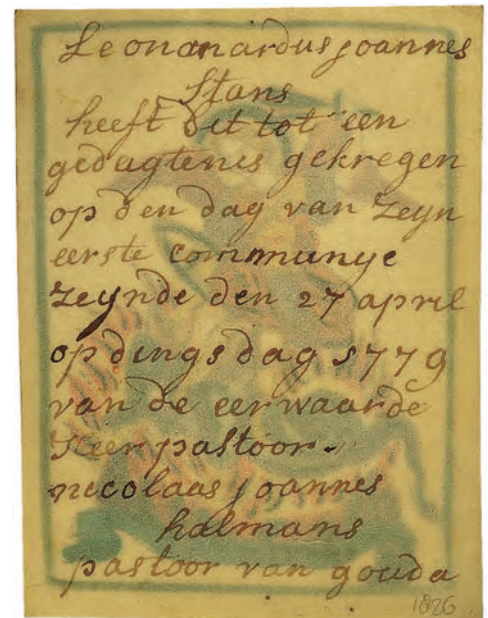 Leonanardus joannes
Stans
heeft dit tot een
gedagtenis gekregen
op den dag van zeyn
eerste communye
zeynde den 27 april
op dingsdag 1779
van de eerwaarde
Heer pastoor.
nicolaas joannes
halmans
pastoor van gouda
1826